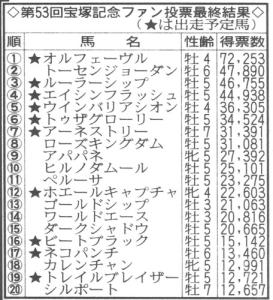 ◇第53回宝塚記念ファン投票最終結果◇
(★は出走予定馬)
順 馬名 性齢 得票数
① ★オルフェーヴル 牡4 72,253
② トーセンジョーダン 牡6 47,890
③ ★ルーラーシップ 牡5 46,755
④ ★エイシンフラッシュ 牡5 44,998
⑤ ★ウインバリアシオン 牡4 36,305
⑥ ★トゥザグローリー 牡5 34,524
⑦ ★アーネストリー 牡7 31,391
⑧ ローズキングダム 牡5 31,081
⑨ アパパネ 牝5 27,392
⑩ ヒルノダムール 牡5 25,101
⑪ ペルーサ 牡5 23,275
⑫ ★ホエールキャプチャ 牝4 22,603
⑬ ゴールドシップ 牡3 21,263
⑭ ワールドエース 牡3 20,816
⑮ ダークシャドウ 牡5 20,665
⑯ ★ビートブラック 牡5 15,142
⑰ ★ネコパンチ 牡6 13,460
⑱ カレンチャン 牝5 12,991
⑲ ★トレイルブレイザー 牡5 12,721
⑳ シルポート 牡7 12,657